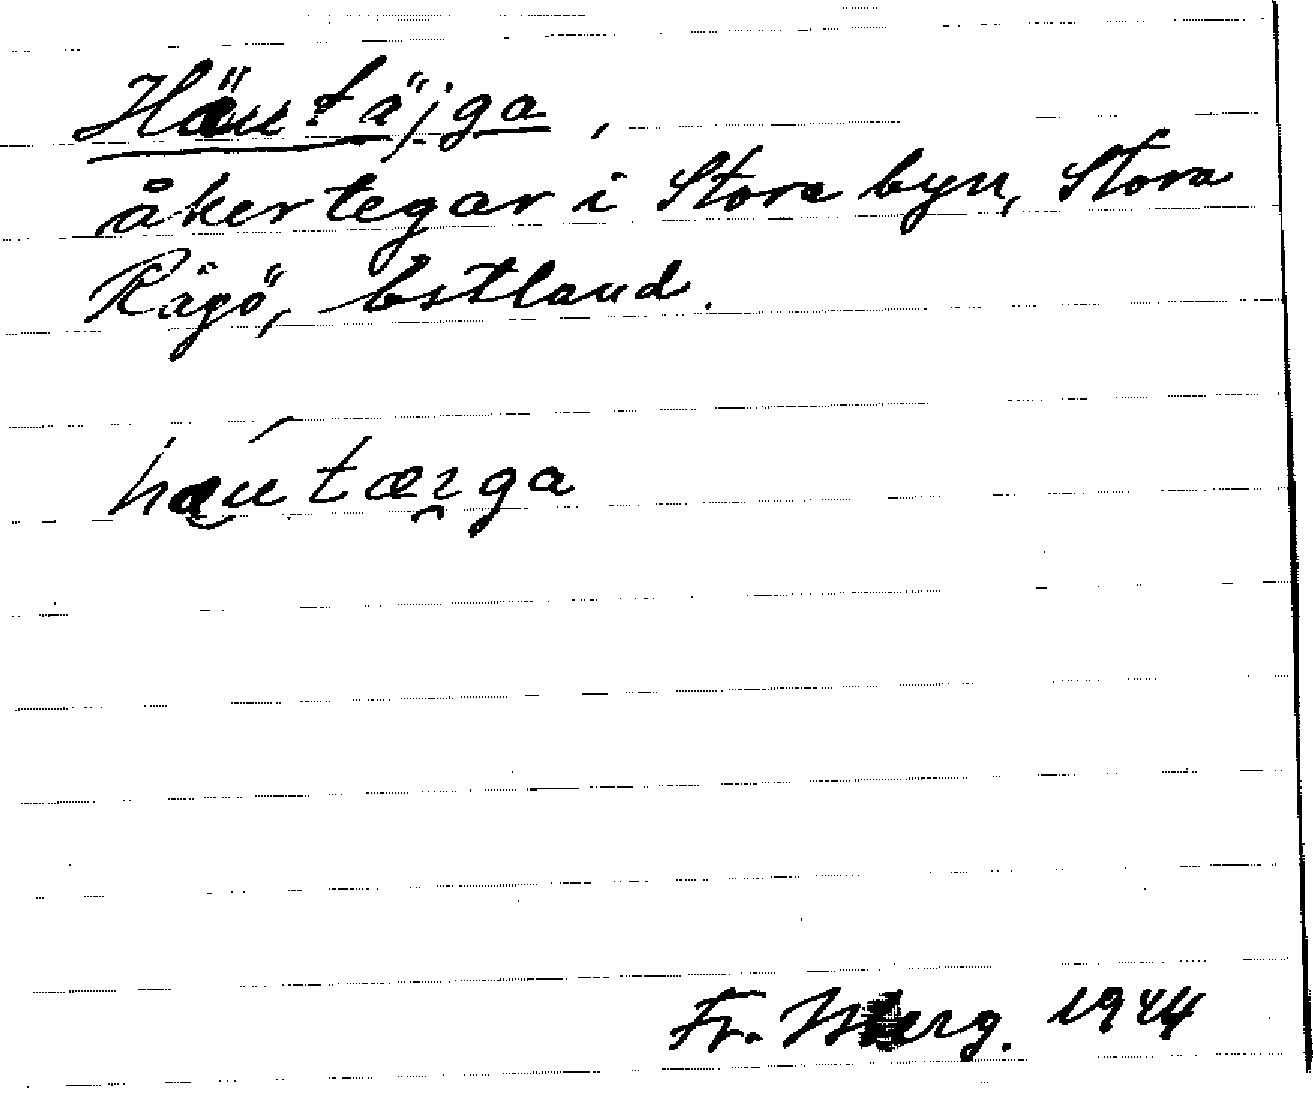 Häutäjga,
åkertegar i Stora byn, Stora
Rågö, Estland.
hæutæɪga
Fr. Isberg. 1944